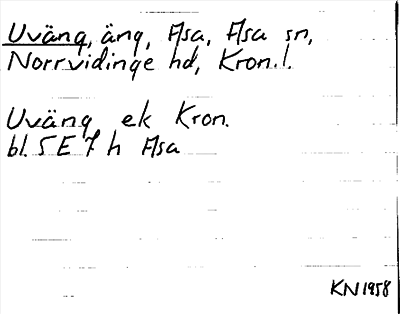 Uväng, äng, Asa, Asa sn,
Norrvidinge hd, Kron.l.
Uväng ek Kron.
bl. 5 E 7 h Asa
KN 1958